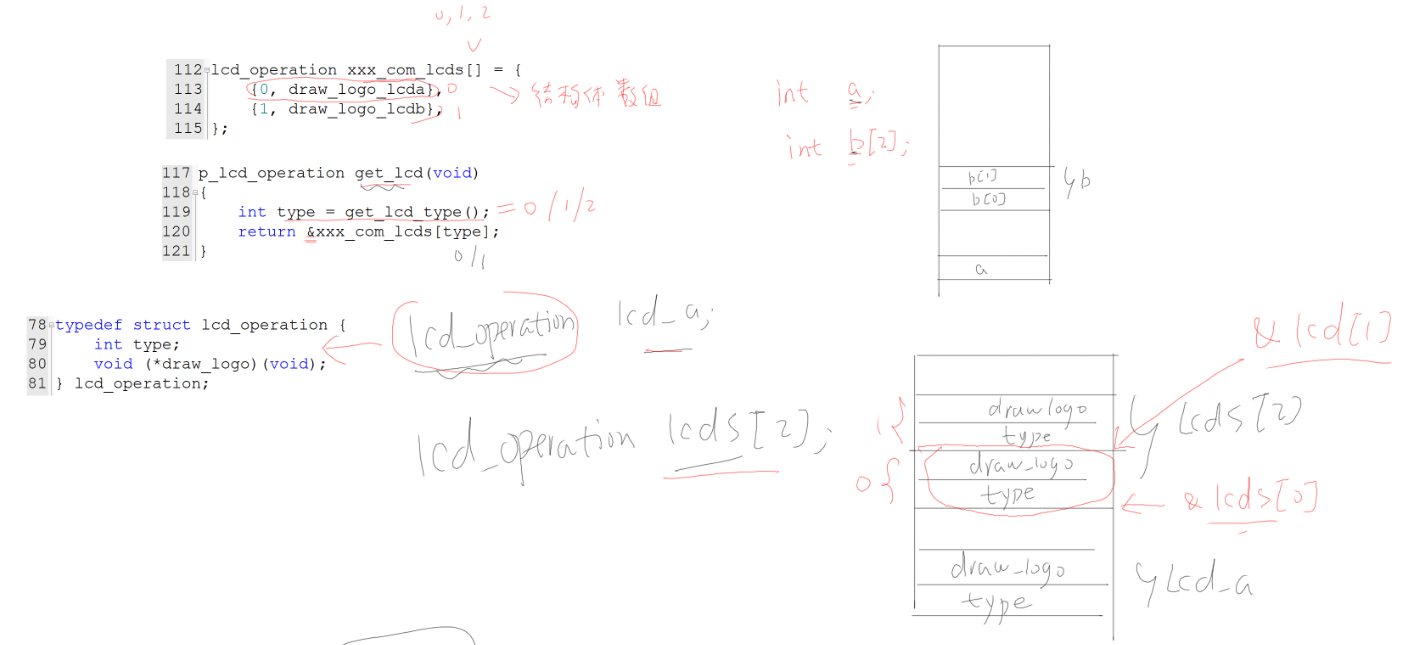 0, 1, 2
112 lcd_operation xxx_com_lcds[] = {
113     {0, draw_logo_lcda}, 0
114     {1, draw_logo_lcdb}, 1
115 };
结构体数组
int a;
int b[2];
b[1]
b[0]
b
a
117 p_lcd_operation get_lcd(void)
118 {
119     int type = get_lcd_type(); = 0/1/2
120     return &xxx_com_lcds[type];
0/1
121 }
78 typedef struct lcd_operation {
79     int type;
80     void (*draw_logo)(void);
81 } lcd_operation;
lcd_operation lcd_a;
lcd_operation lcds[2];
& lcd[1]
1
draw logo
type
Lcds[2]
0
draw_logo
type
& lcds[0]
draw_logo
type
Lcd_a